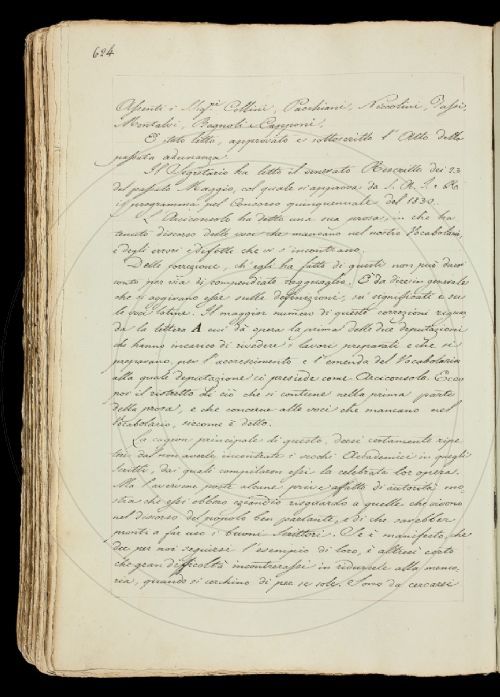 624
Assenti i Sigri Collini, Pacchiani, Niccolini, Tassi,
Montalvi, Bagnoli e Capponi.
È stato letto, approvato e sottoscritto l'Atto della
passata adunanza.
Il Segretario ha letto il venerato Rescritto dei 23
del passato Maggio, col quale si approva da S. A. I. e R.
il programma pel Concorso quinquennale del 1830.
L'Arciconsolo ha detto una sua prosa, in che ha
tenuto discorso delle voci che mancano nel nostro Vocabolario,
e degli errori e difetti che vi s'incontrano.
Delle correzione, ch'egli ha fatta di questi non può darsi
conto per via di compendiato ragguaglio. È da dire in generale
che si aggirano esse sulle definizioni, sui significati e sul-
le voci latine. Il maggior numero di queste correzioni riguar
da la lettera A cui dà opera la prima delle due deputazioni
che hanno incarico di rivedere i lavori preparati e che si
preparano, per l'accrescimento e l'emenda del Vocabolario
alla quale deputazione ei presiede come Arciconsolo. Ecco
poi il ristretto di ciò che si contiene nella prima parte
della prosa, e che concerne alle voci che mancano nel
Vocabolario, siccome è detto.
La cagion principale di questo, deesi certamente ripe
tere dal non averle incontrate i vecchi Accademici in quegli
Scritti, dai quali compilarono essi la celebrata lor opera.
Ma l'averne poste alcune prive affatto di autorità mo-
stra che essi ebbero eziandio risguardo a quelle che vivono
nel discorso del popolo ben parlante, e di che sarebber
pronti a far uso i buoni Scrittori. Se è manifesto, che
dee per noi seguirsi l'esempio di loro, è altresì certo
che gran difficoltà incontrerassi in ridursele alla memo-
ria, quando si cerchino di per se sole. Sono da cercarsi